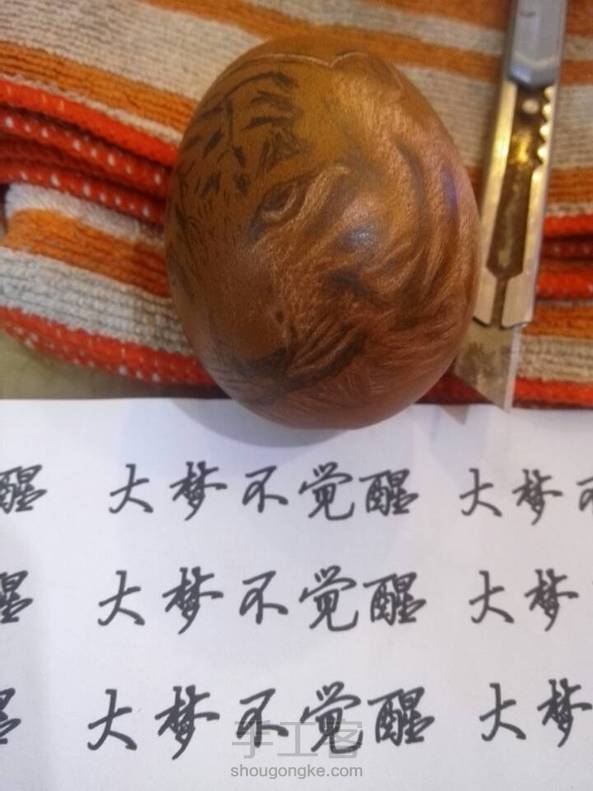 醒 大梦不觉醒 大梦不
醒 大梦不觉醒 大梦
大梦不觉醒 大梦
手工客
shougongke.com